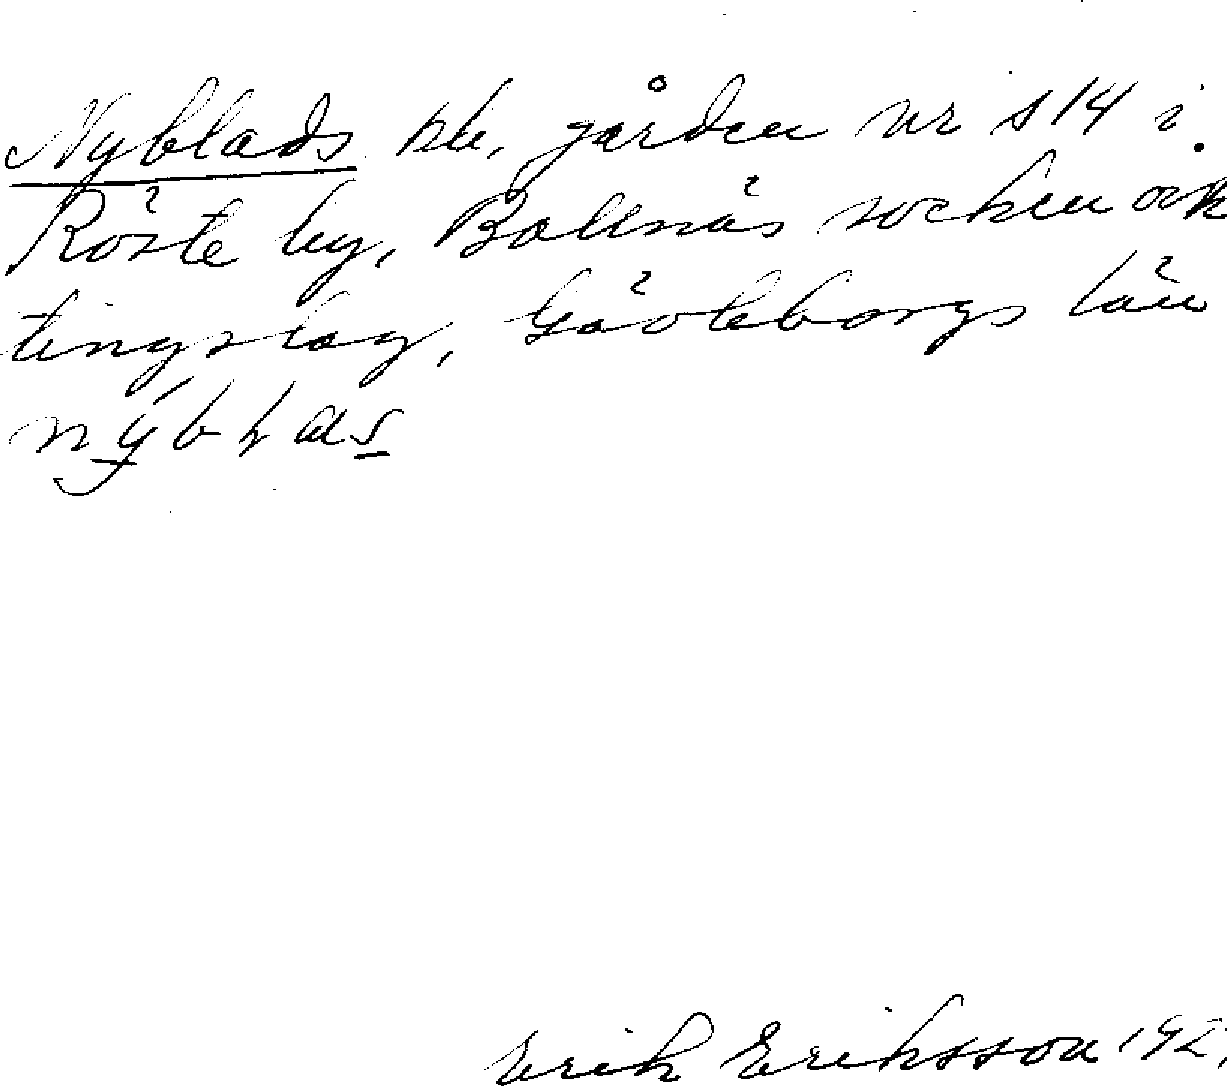 Nyblads ple, gården nr s 14 i
Röste by, Bollnäs socken ock
tingslag, Gävleborgs län
Erik Eriksson 192